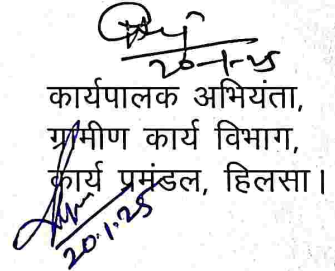 20-1-25
कार्यपालक अभियंता,
ग्रामीण कार्य विभाग,
कार्य प्रमंडल, हिलसा।
20.1.25